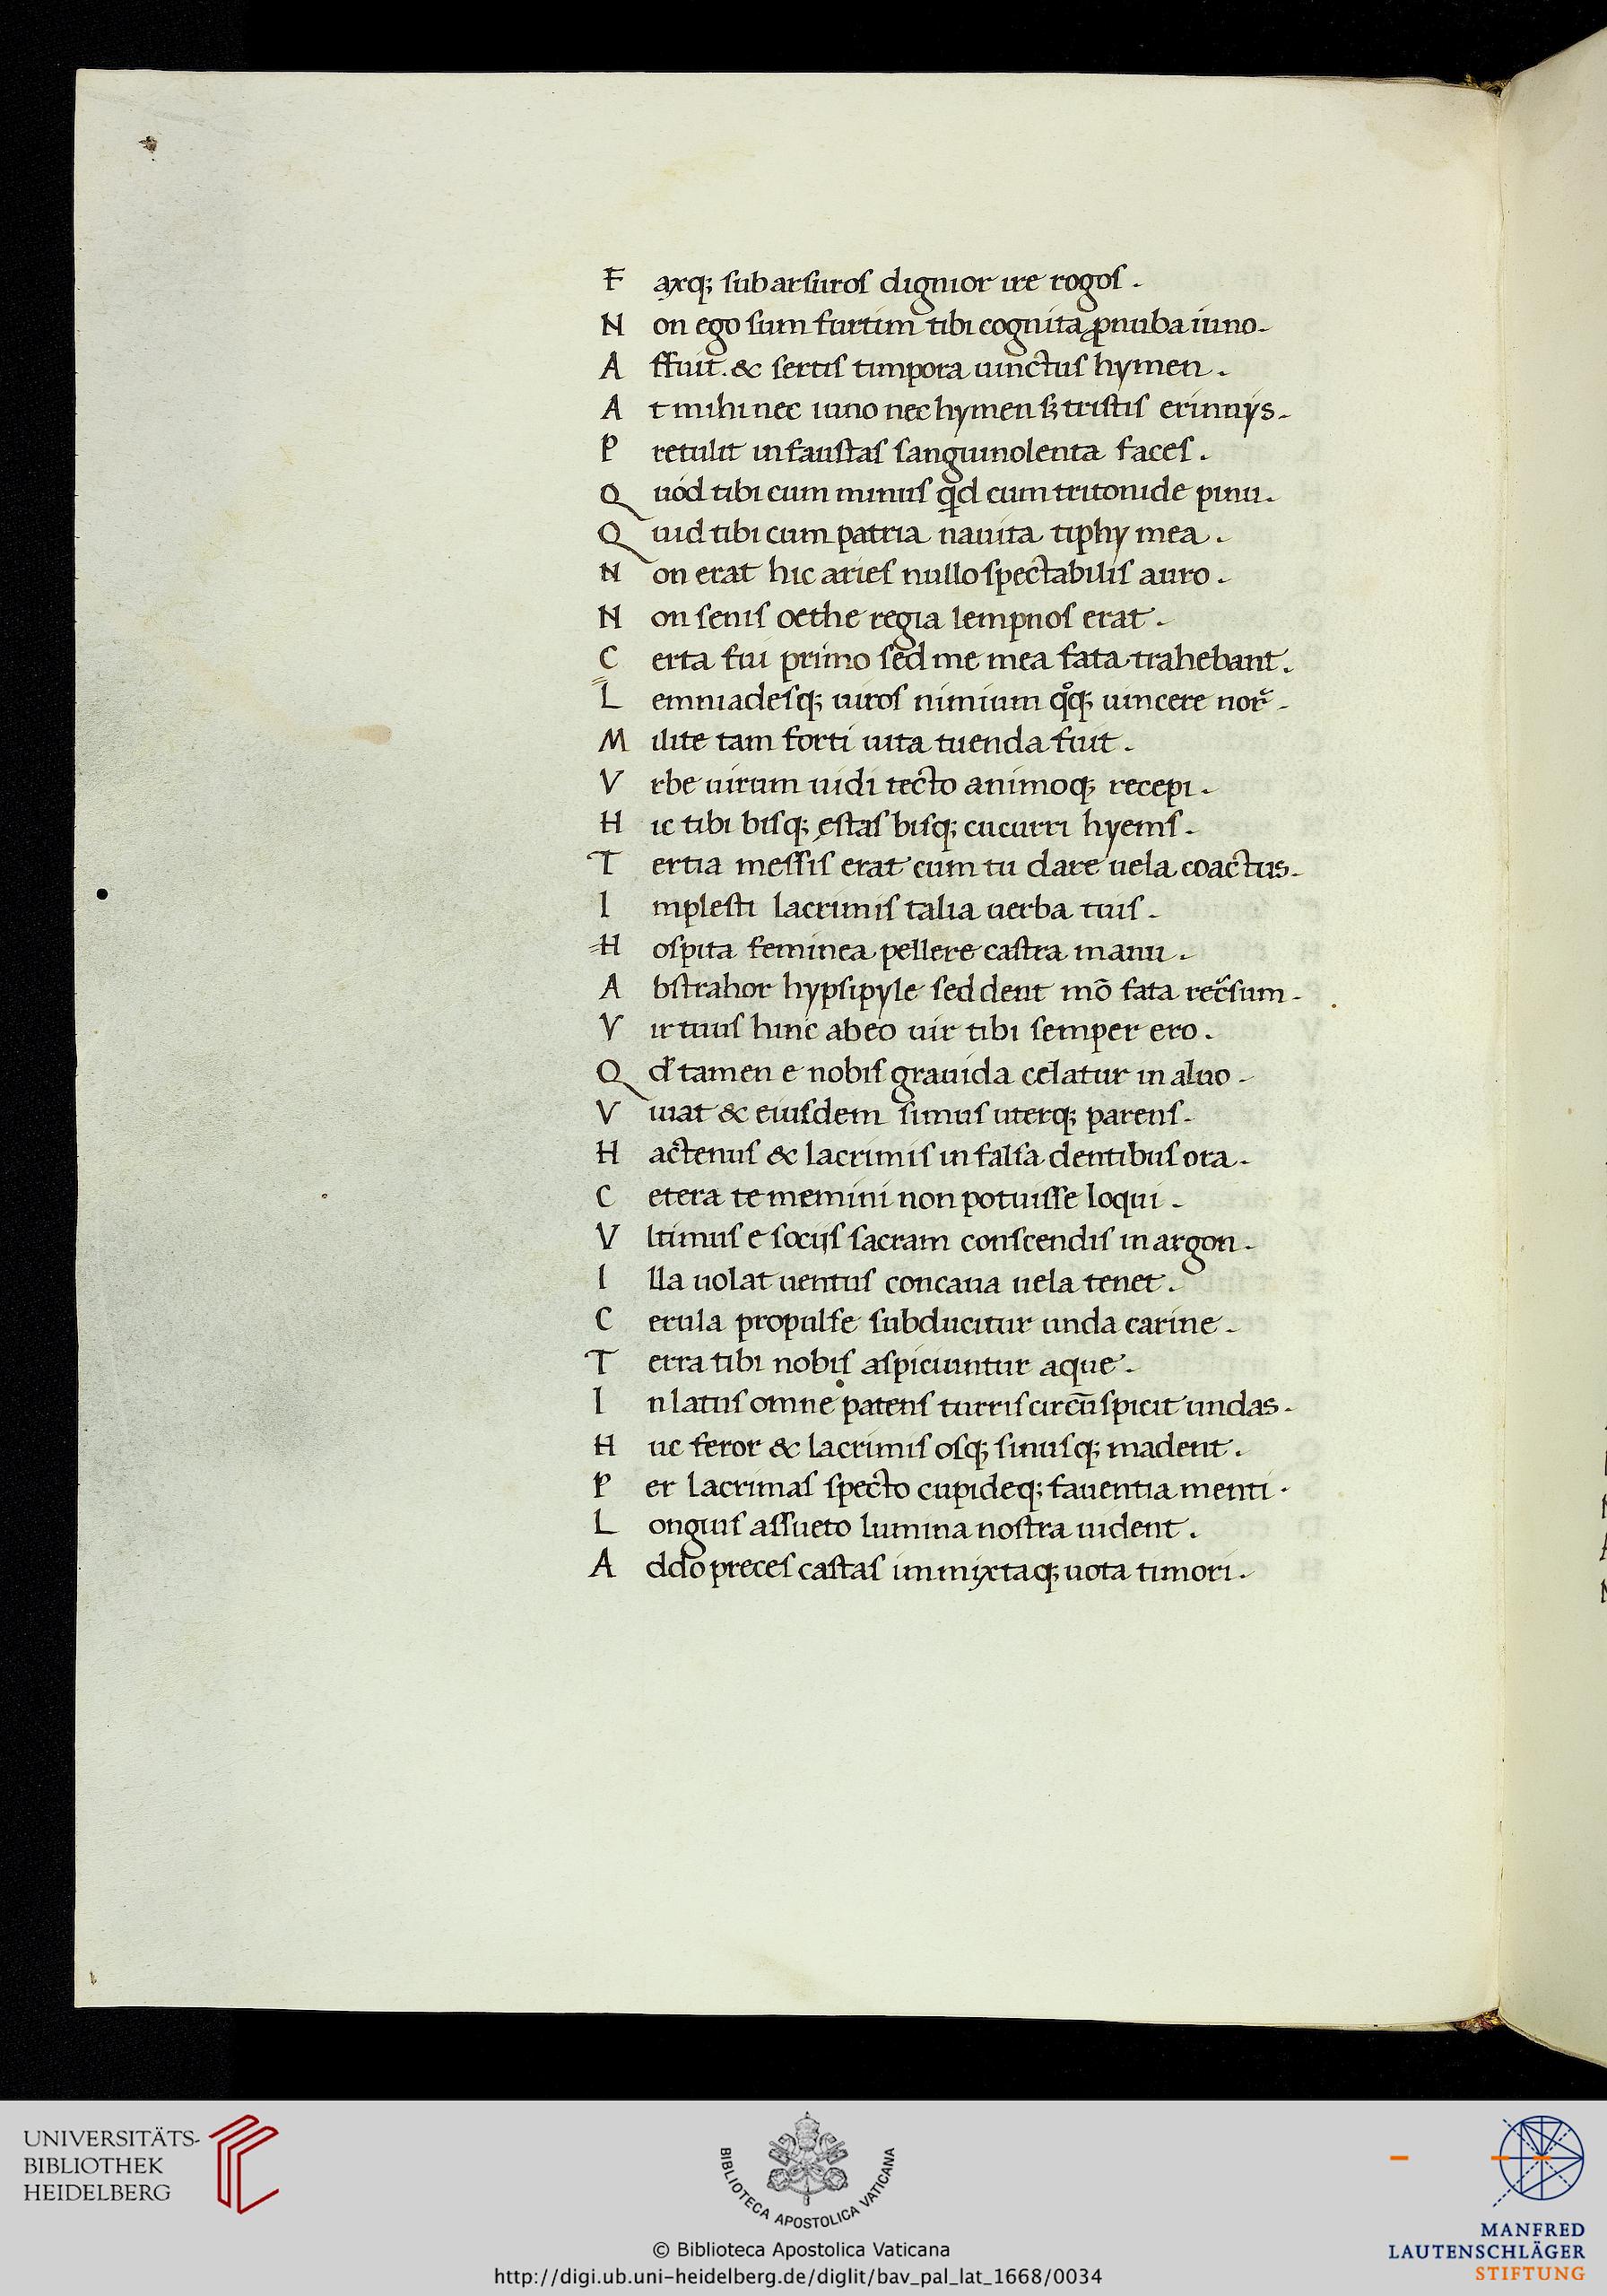 F axq; sub arsuros dignior ire rogos.
N on ego sum furtim tibi cognita ꝓnuba iuno.
A ffuit. & sertis timpora uinctus hymen.
A t mihi nec iuno nec hymen sꝫ tristis erinnys.
P retulit infaustas sanguinolenta faces.
Q uod tibi cum minus qd cum tritonide pinu.
Q uid tibi cum patria nauita tiphy mea.
N on erat hic aries nullo spectabilis auro.
N on senis oethe regia lempnos erat.
C erta fui primo sed me mea fata trahebant.
L emniadesq; uiros nimium qͦq; uincere nor̃.
M ilite tam forti uita tuenda fuit.
V rbe uirum uidi tecto animoq; recepi.
H ic tibi bisq; ęstas bisq; cucurri hyems.
T ertia messis erat cum tu dare uela coactus.
I mplesti lacrimis talia uerba tuis.
H ospita feminea pellere castra manu.
A bstrahor hypsipyle sed dent mō fata rec̃sum.
V ir tuus hinc abeo uir tibi semper ero.
Q d̃ tamen e nobis grauida celatur in aluo.
V iuat & eiusdem simus uterq; parens.
H actenus & lacrimis in falsa dentibus ora.
C etera te memini non potuisse loqui.
V ltimus e socijs sacram conscendis in argon.
I lla uolat uentus concaua uela tenet.
C erula propulse subducitur unda carine.
T erra tibi nobis aspiciuntur aque.
I n latus omne patens turris circūspicit undas.
H uc feror & lacrimis osq; sinusq; madent.
P er lacrimas specto cupideq; fauentia menti.
L ongius assueto lumina nostra uident.
A ddo preces castas immixtaq; uota timori.
UNIVERSITÄTS-
BIBLIOTHEK
HEIDELBERG
BIBLIOTECA APOSTOLICA VATICANA
© Biblioteca Apostolica Vaticana
http://digi.ub.uni-heidelberg.de/diglit/bav_pal_lat_1668/0034
MANFRED
LAUTENSCHLÄGER
STIFTUNG